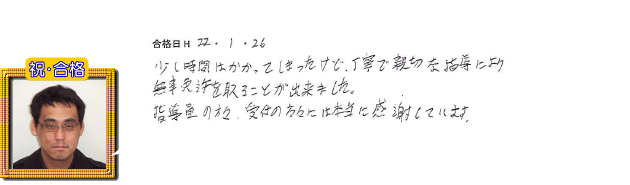 合格日 H 22・1・26
祝・合格
少し時間はかかってしまったけど、丁寧で親切な指導により
無事免許を取ることが出来ました。
指導員の方々、受付の方々には本当に感謝しています。